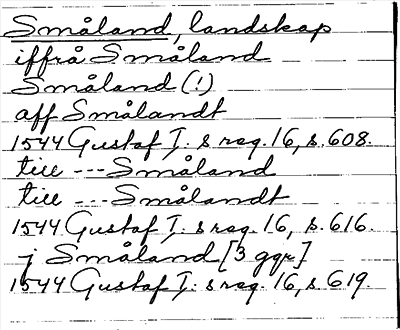 Småland, landskap
iffrå Småland
Småland (!)
aff Smålandt
1544 Gustaf I:s reg. 16, s. 608.
till --- Småland
till --- Smålandt
1544 Gustaf I:s reg. 16, s. 616.
j Småland [3 ggr]
1544 Gustaf I:s reg. 16, s. 619.